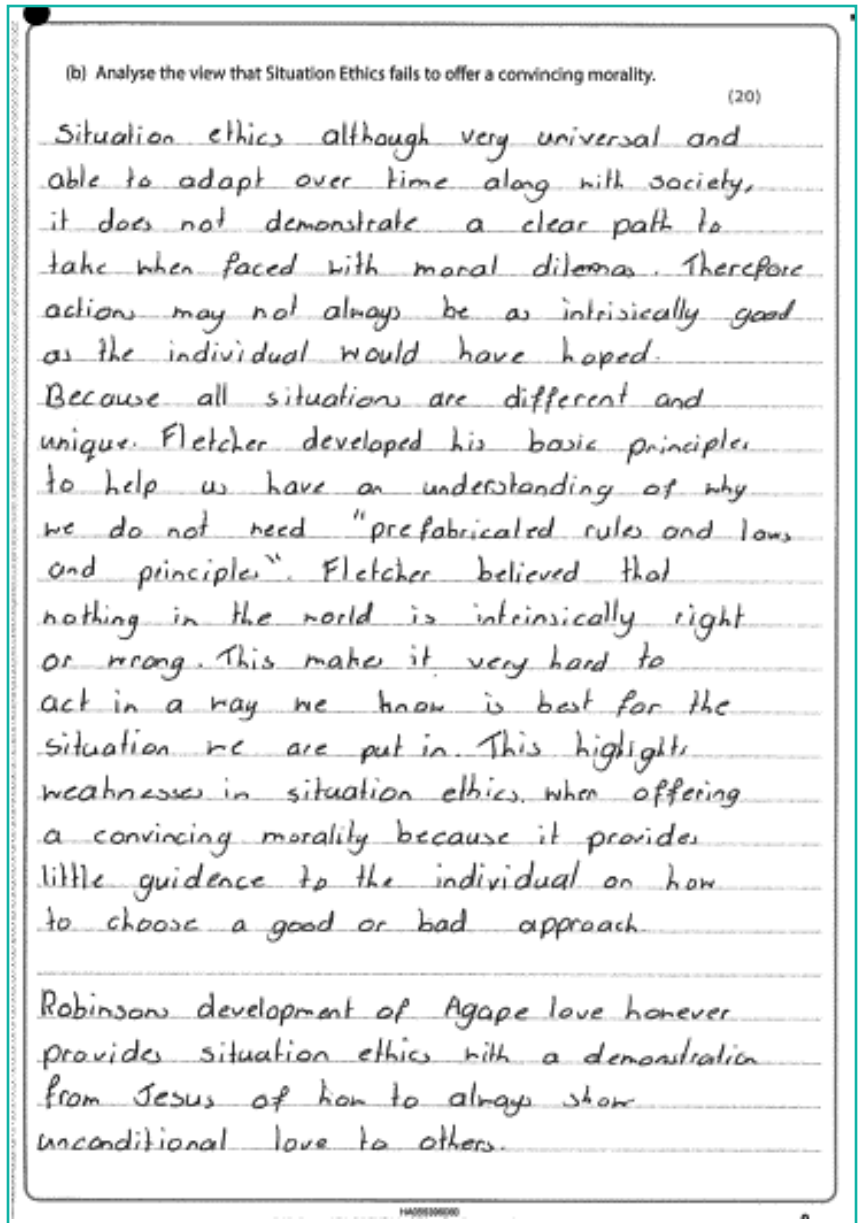 (b) Analyse the view that Situation Ethics fails to offer a convincing morality.
(20)
Situation ethics although very universal and
able to adapt over time along with society,
it does not demonstrate a clear path to
take when faced with moral dilemas. Therefore
actions may not always be as intrisically good
as the individual would have hoped.
Because all situations are different and
unique. Fletcher developed his basic principles
to help us have an understanding of why
we do not need "prefabricated rules and laws
and principles". Fletcher believed that
nothing in the world is intrinsically right
or wrong. This makes it very hard to
act in a way we know is best for the
situation we are put in. This higlights
weaknesses in situation ethics. when offering
a convincing morality because it provides
little guidence to the individual on how
to choose a good or bad approach
Robinsons development of Agape love however
provides situation ethics with a demonstration
from Jesus of how to always show
unconditional love to others.